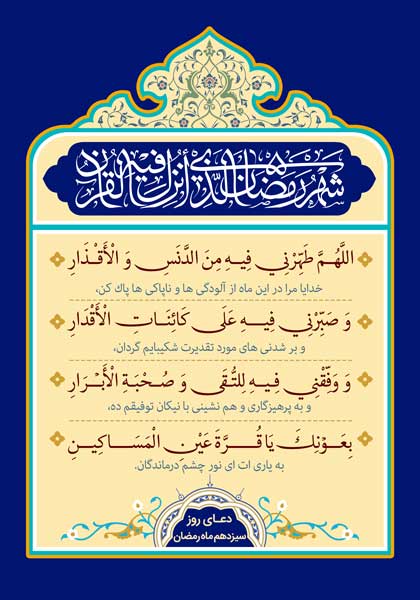 شَهْرُ رَمَضَانَ الَّذِي أُنْزِلَ فِيهِ الْقُرْآنُ
اللَّهُمَّ طَهِّرْنِي فِيهِ مِنَ الدَّنَسِ وَ الْأَقْذَارِ
خدایا مرا در این ماه از آلودگی ها و ناپاکی ها پاك کن،
وَ صَبِّرْنِي فِيهِ عَلَى كَائِنَاتِ الْأَقْدَارِ
و بر شدنی های مورد تقدیرت شکیبایم گردان،
وَ وَفِّقْنِي فِيهِ لِلتُّقَى وَ صُحْبَةِ الْأَبْرَارِ
و به پرهیزگاری و هم نشینی با نیکان توفیقم ده،
بِعَوْنِكَ يَا قُرَّةَ عَيْنِ الْمَسَاكِينِ
به یاری ات ای نور چشم درماندگان.
دعـای روز
سیزدهم ماه رمضان